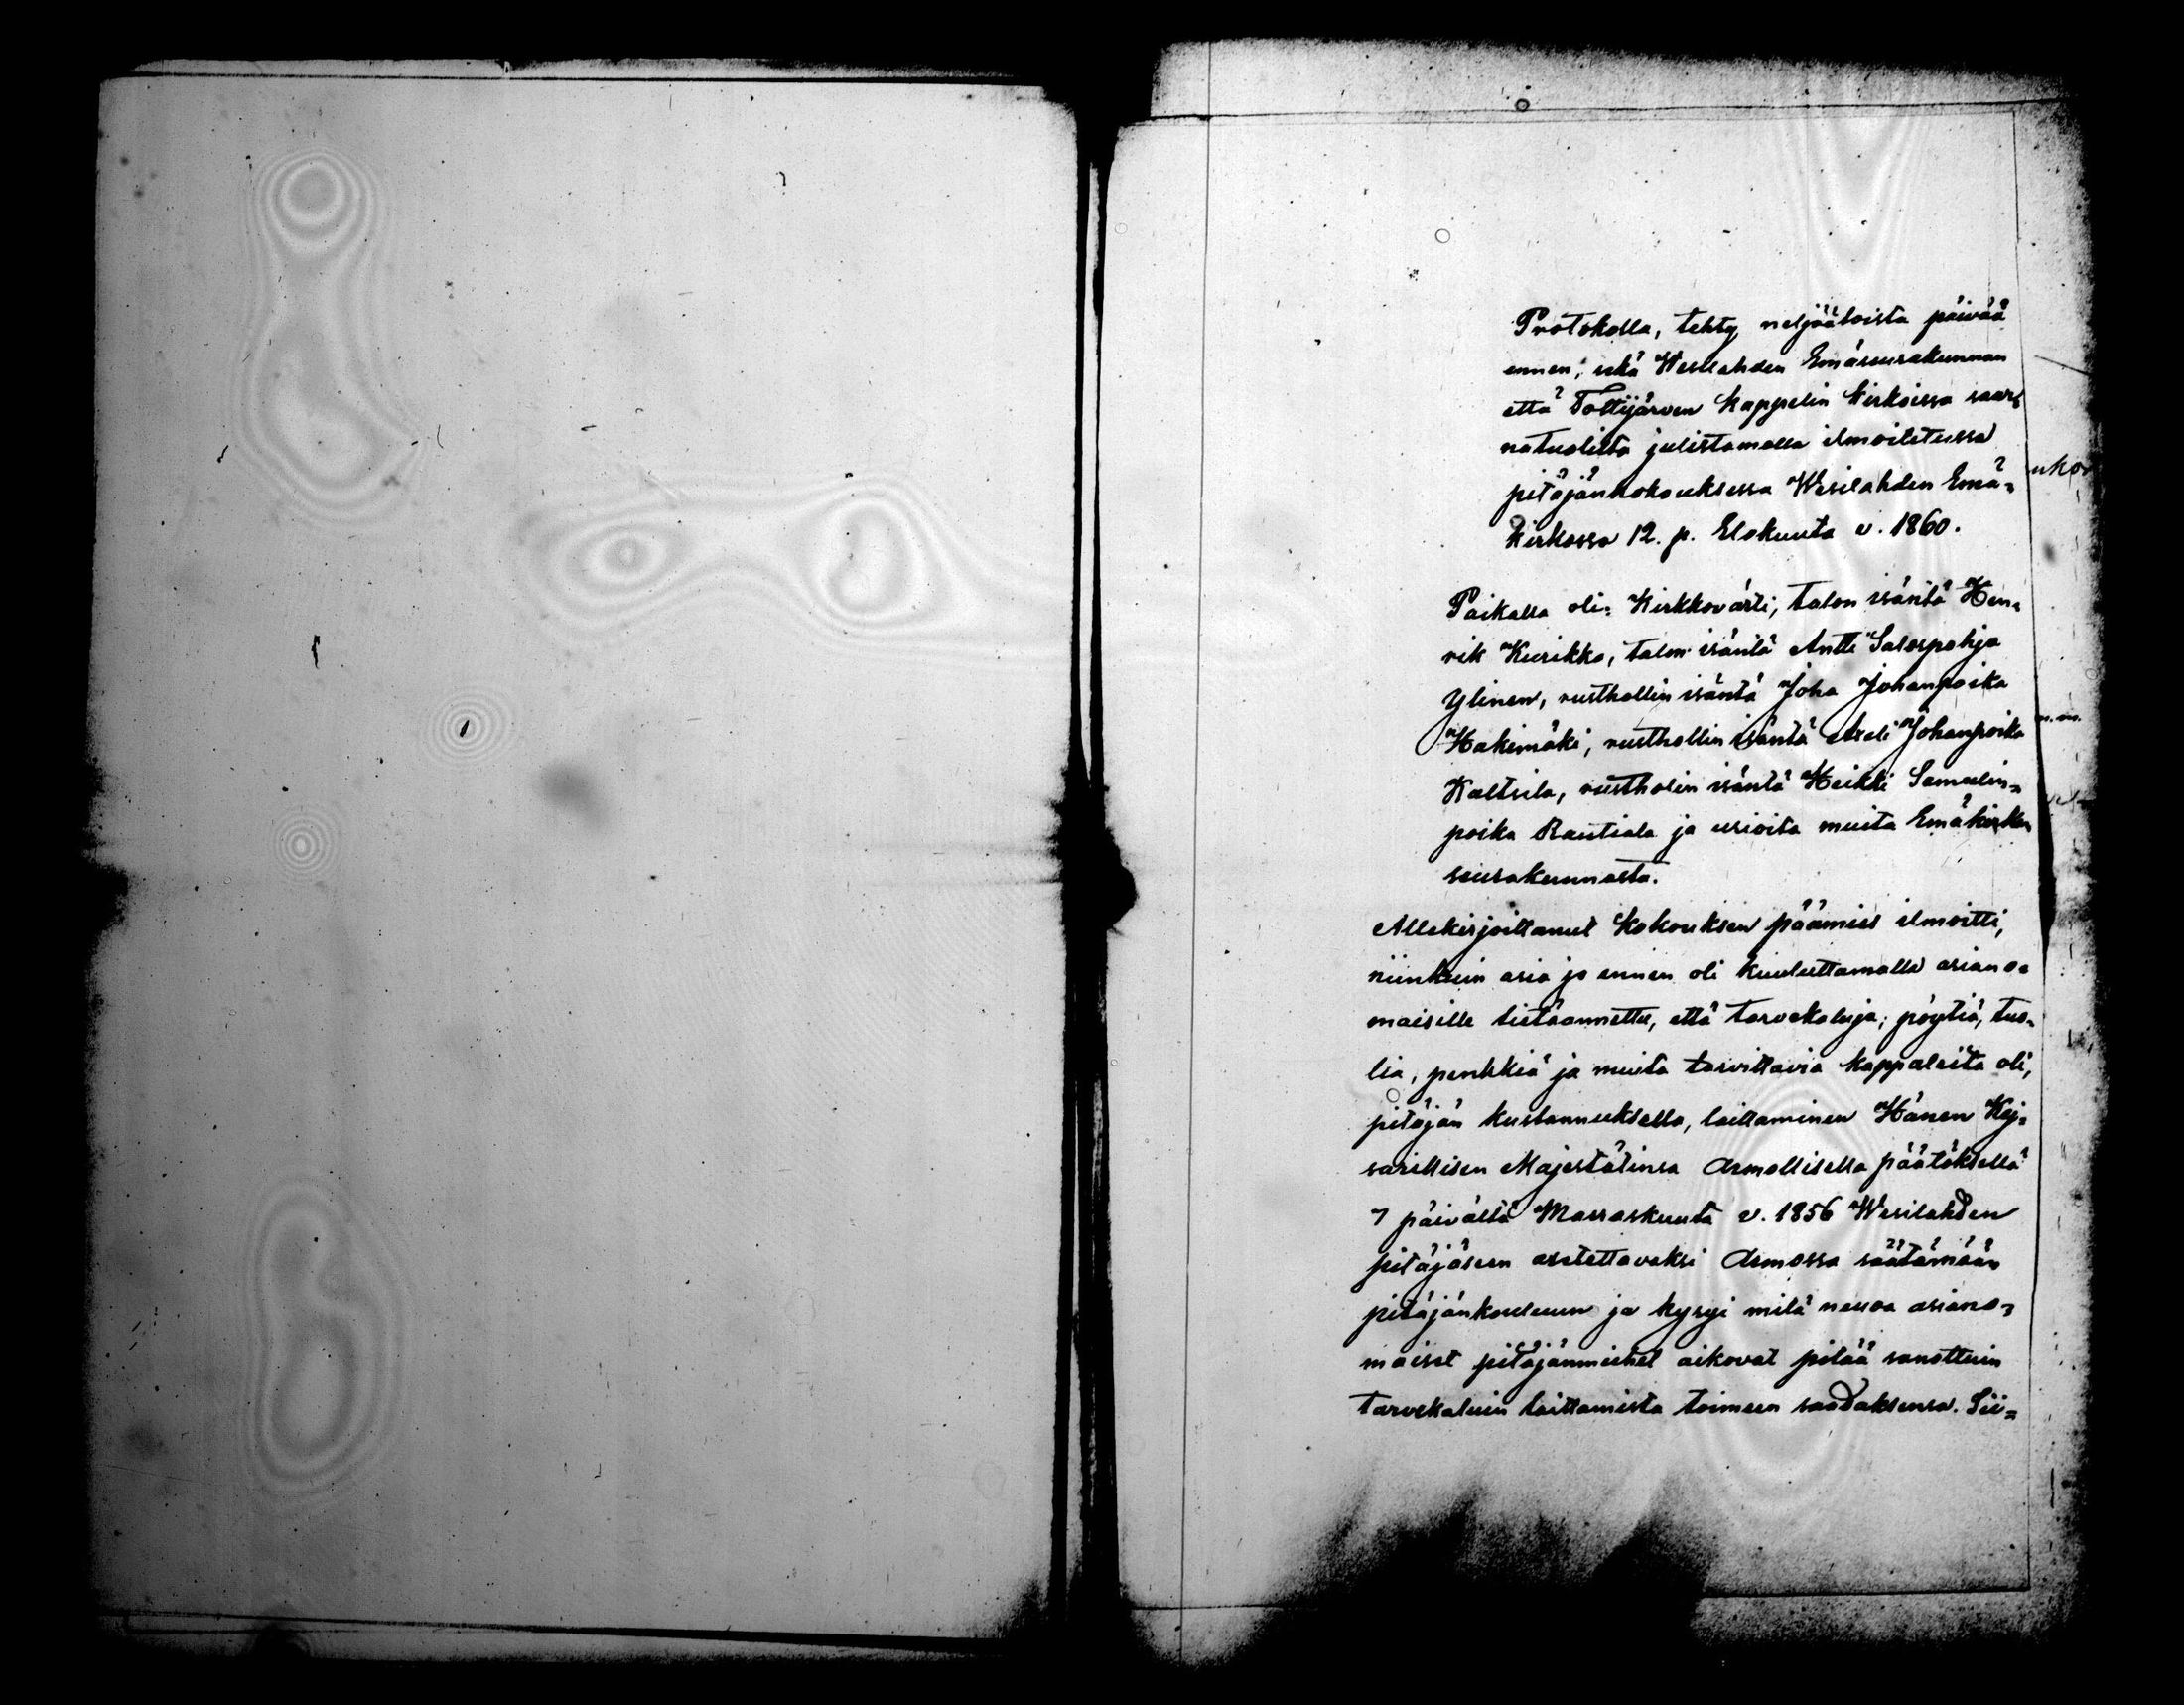 Protokolla, tehty neljäätoista päivää
ennen, sekä Wesilahden Emäseurakunnan
että Tottijärven Kappelin kirkoissa saar¬
natuolilta julistamalla ilmoitetussa
pitäjänkokouksessa Wesilahden Emä¬
kirkossa 12. p. Elokuuta v. 1860.
Paikalla oli: Kirkkovärti, talon isäntä Hen¬
rik Kurikka, talon isäntä Antti Salospohja
Ylinen, rusthollin isäntä Joha Johanpoika
Hakimäki, rusthollin isäntä Axeli Johanpoika
Kaltsila, rustholin isäntä Heikki Samulin¬
poika Rautiala ja usioita muita Emäkirkon
seurakunnasta.
Allekirjoittanut Kokouksen päämies ilmoitti,
niinkuin asia jo ennen oli kuuluttamalla asiano¬
maisille tietäannettu, että tarvekaluja, pöytiä, tuo¬
lia, penkkiä ja muita tarvittavia kappaleita oli,
pitäjän kustannuksella, laittaminen Hänen Kej¬
sarillisen Majestätinsa Armollisella päätöksellä
7 päivältä Marraskuuta v. 1856 Wesilahden
pitäjäseen asetettavaksi Armossa säätämään
pitäjänkouluun ja kysyi mitä neuoa asiano¬
maiset pitäjänmiehet aikovat pitää sanottuin
tarvekaluin laittamista toimeen saadaksensa. Sii¬